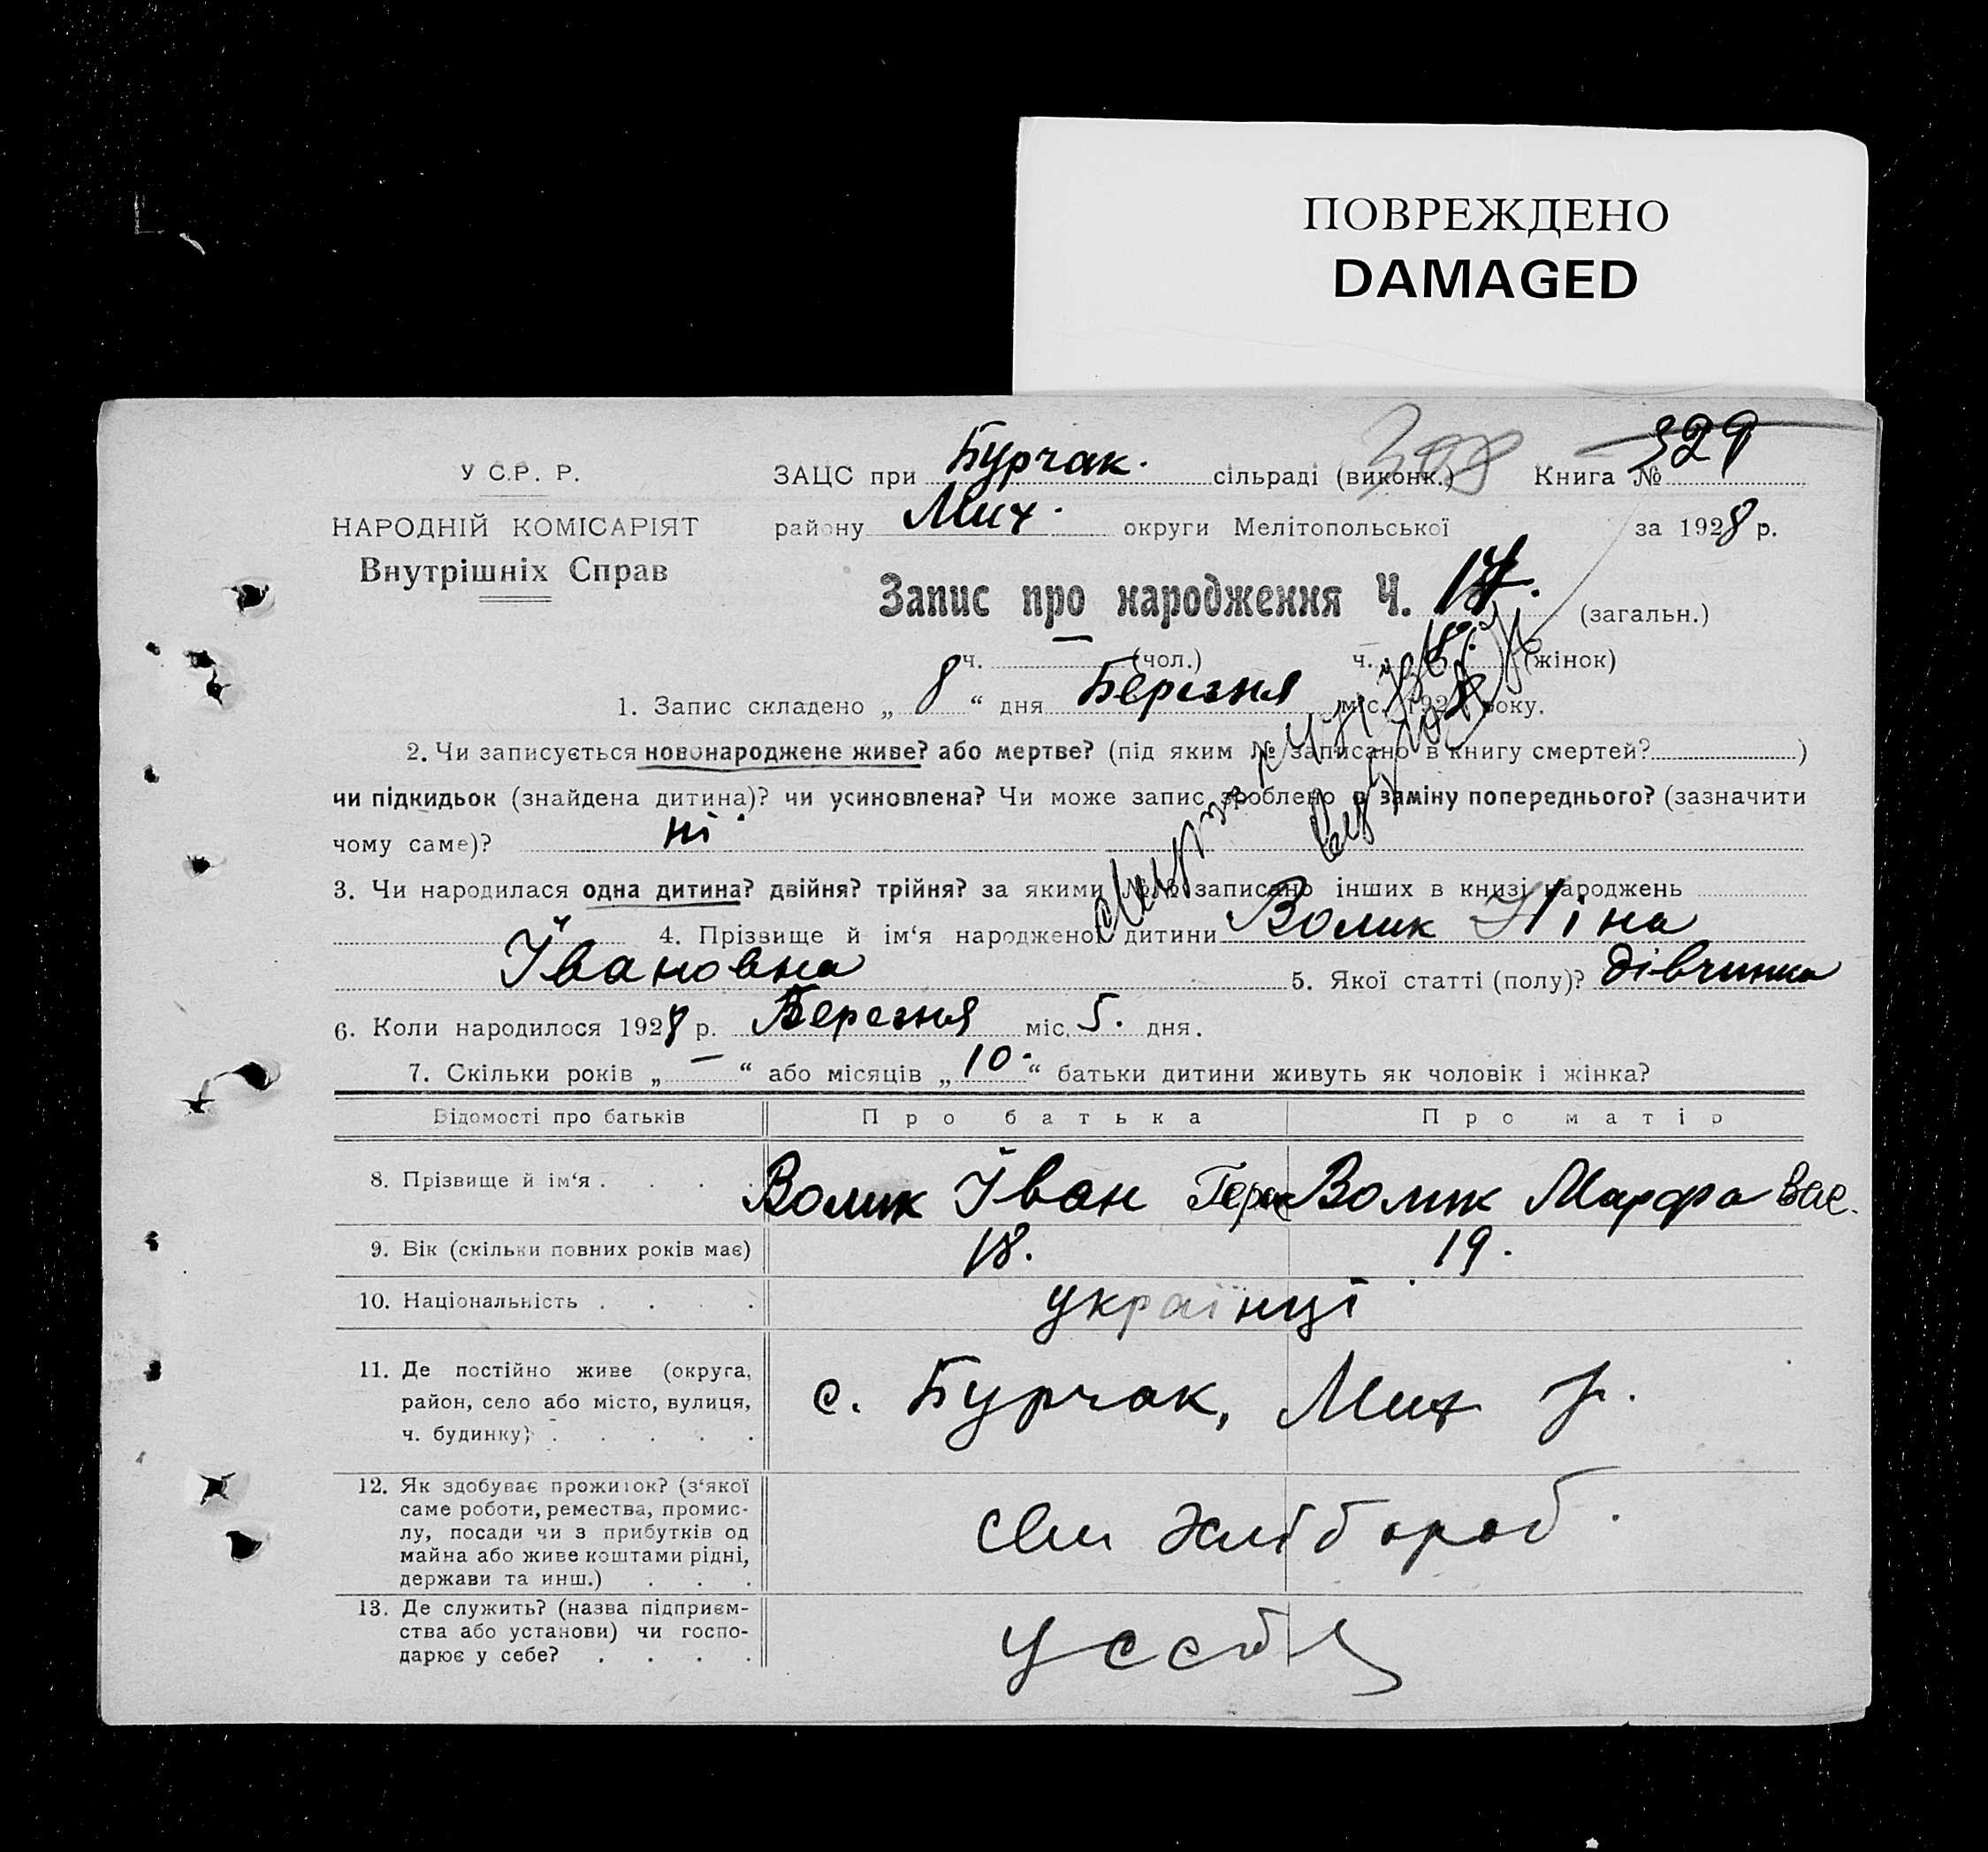 ПОВРЕЖДЕНО
DAMAGED
У С.Р. Р.
НАРОДНІЙ КОМІСАРІЯТ
Внутрішніх Справ
ЗАЦС при Бурчак. сільраді (виконк.) Книга № 329
району Мих. округи Мелітопольської за 1928 р.
Запис про народження Ч. 17. (загальн.)
ч. — (чол.) ч. 8. (жінок)
1. Запис складено „ 8 “ дня Березня міс. 1928 року.
2. Чи записується новонароджене живе? або мертве? (під яким № записано в книгу смертей? )
чи підкидьок (знайдена дитина)? чи усиновлена? Чи може запис зроблено в заміну попереднього? (зазначити
чому саме)? ні
3. Чи народилася одна дитина? двійня? трійня? за якими №№ записано інших в книзі народжень
4. Прізвище й ім‘я народженої дитини Волик Ніна
Івановна 5. Якої статті (полу)? дівчинка
6. Коли народилося 1928 р. Березня міс. 5. дня.
7. Скільки років „ — “ або місяців „ 10. “ батьки дитини живуть як чоловік і жінка?
Відомості про батьків Про батька Про матір
8. Прізвище й ім‘я . . . . Волик Іван Волик Марфа Вас.
9. Вік (скільки повних років має) 18. 19.
10. Національність . . . . українці
11. Де постійно живе (округа,
район, село або місто, вулиця,
ч. будинку) . . . . .
с. Бурчак, Мих р.
12. Як здобуває прожиток? (з‘якої
саме роботи, ремества, промис-
лу, посади чи з прибутків од
майна або живе коштами рідні,
держави та инш.) . . .
хлібороб.
13. Де служить? (назва підприєм-
ства або установи) чи госпо-
дарює у себе? . . . .
у себе